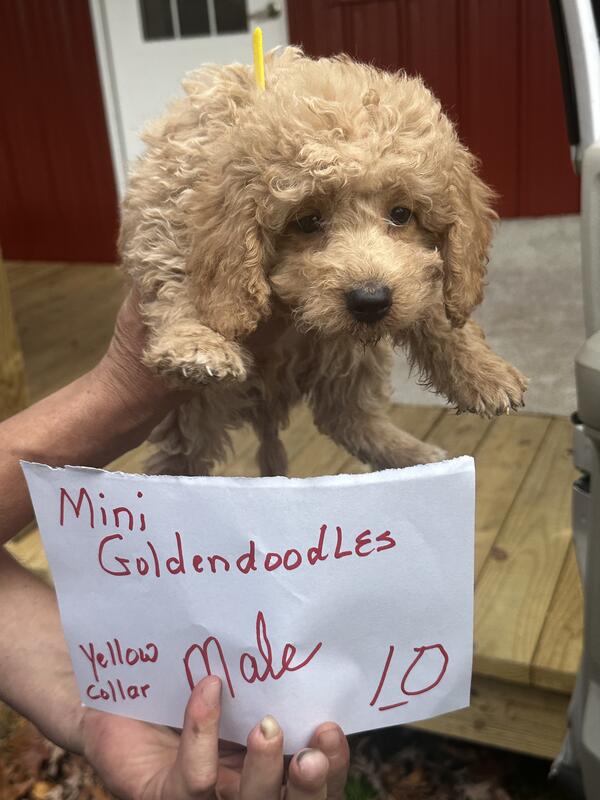 Mini
GoldendoodLEs
Yellow Male 10
Collar